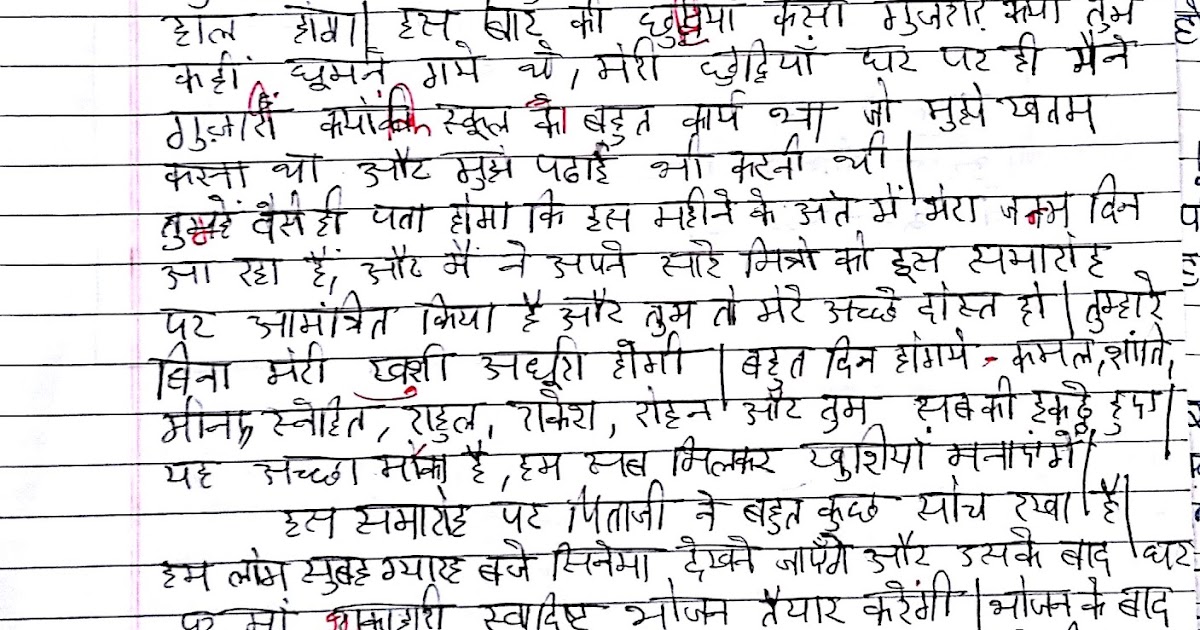 हाल होगा| इस बार की छुट्टियाँ कैसी गुजारी क्या तुम
कहीं घूमने गये थे, मेरी छुट्टियाँ घर पर ही मैने
गुज़ारी क्योंकि स्कूल का बहुत कार्य था जो मुझे खतम
करना था और मुझे पढाई भी करनी थी|
तुम्हें वैसे ही पता होगा कि इस महीने के अंत में मेरा जन्म दिन
आ रहा है, और मैं ने अपने सारे मित्रो को इस समारोह
पर आमंत्रित किया है और तुम तो मेरे अच्छे दोस्त हो| तुम्हारे
बिना मेरी खुशी अधूरी होगी| बहुत दिन होगये - कमल, शांति,
मीना, स्नेहित, राहुल, राकेश, रोहन और तुम सबको इकट्ठे हुए|
यह अच्छा मौका है, हम सब मिलकर खुशियाँ मनाएंगे|
इस समारोह पर पिताजी ने बहुत कुछ सोच रखा है|
हम लोग सुबह ग्यारह बजे सिनेमा देखने जाएँगे और उसके बाद घर
पर माँ शाकाहारी स्वादिष्ट भोजन तैयार करेंगी| भोजन के बाद